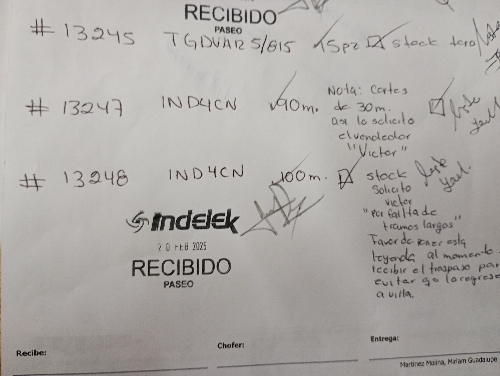 RECIBIDO
PASEO
# 13245 TGDVAR 5/815 15pz stock
# 13247 IND4CN 90m.
Nota: Cortes
de 30m.
asi lo solicito
el vendedor
"Victor"
# 13248 IND4CN 100m. stock
solicito
victor
"Por falta de
tramos largos"
Favor de poner esta
leyenda al momento
recibir el traspaso para
evitar qo lo regrese
a villa.
Indelek
20 FEB 2025
RECIBIDO
PASEO
Recibe: Chofer: Entrega:
Martinez Molina, Miriam Guadalupe